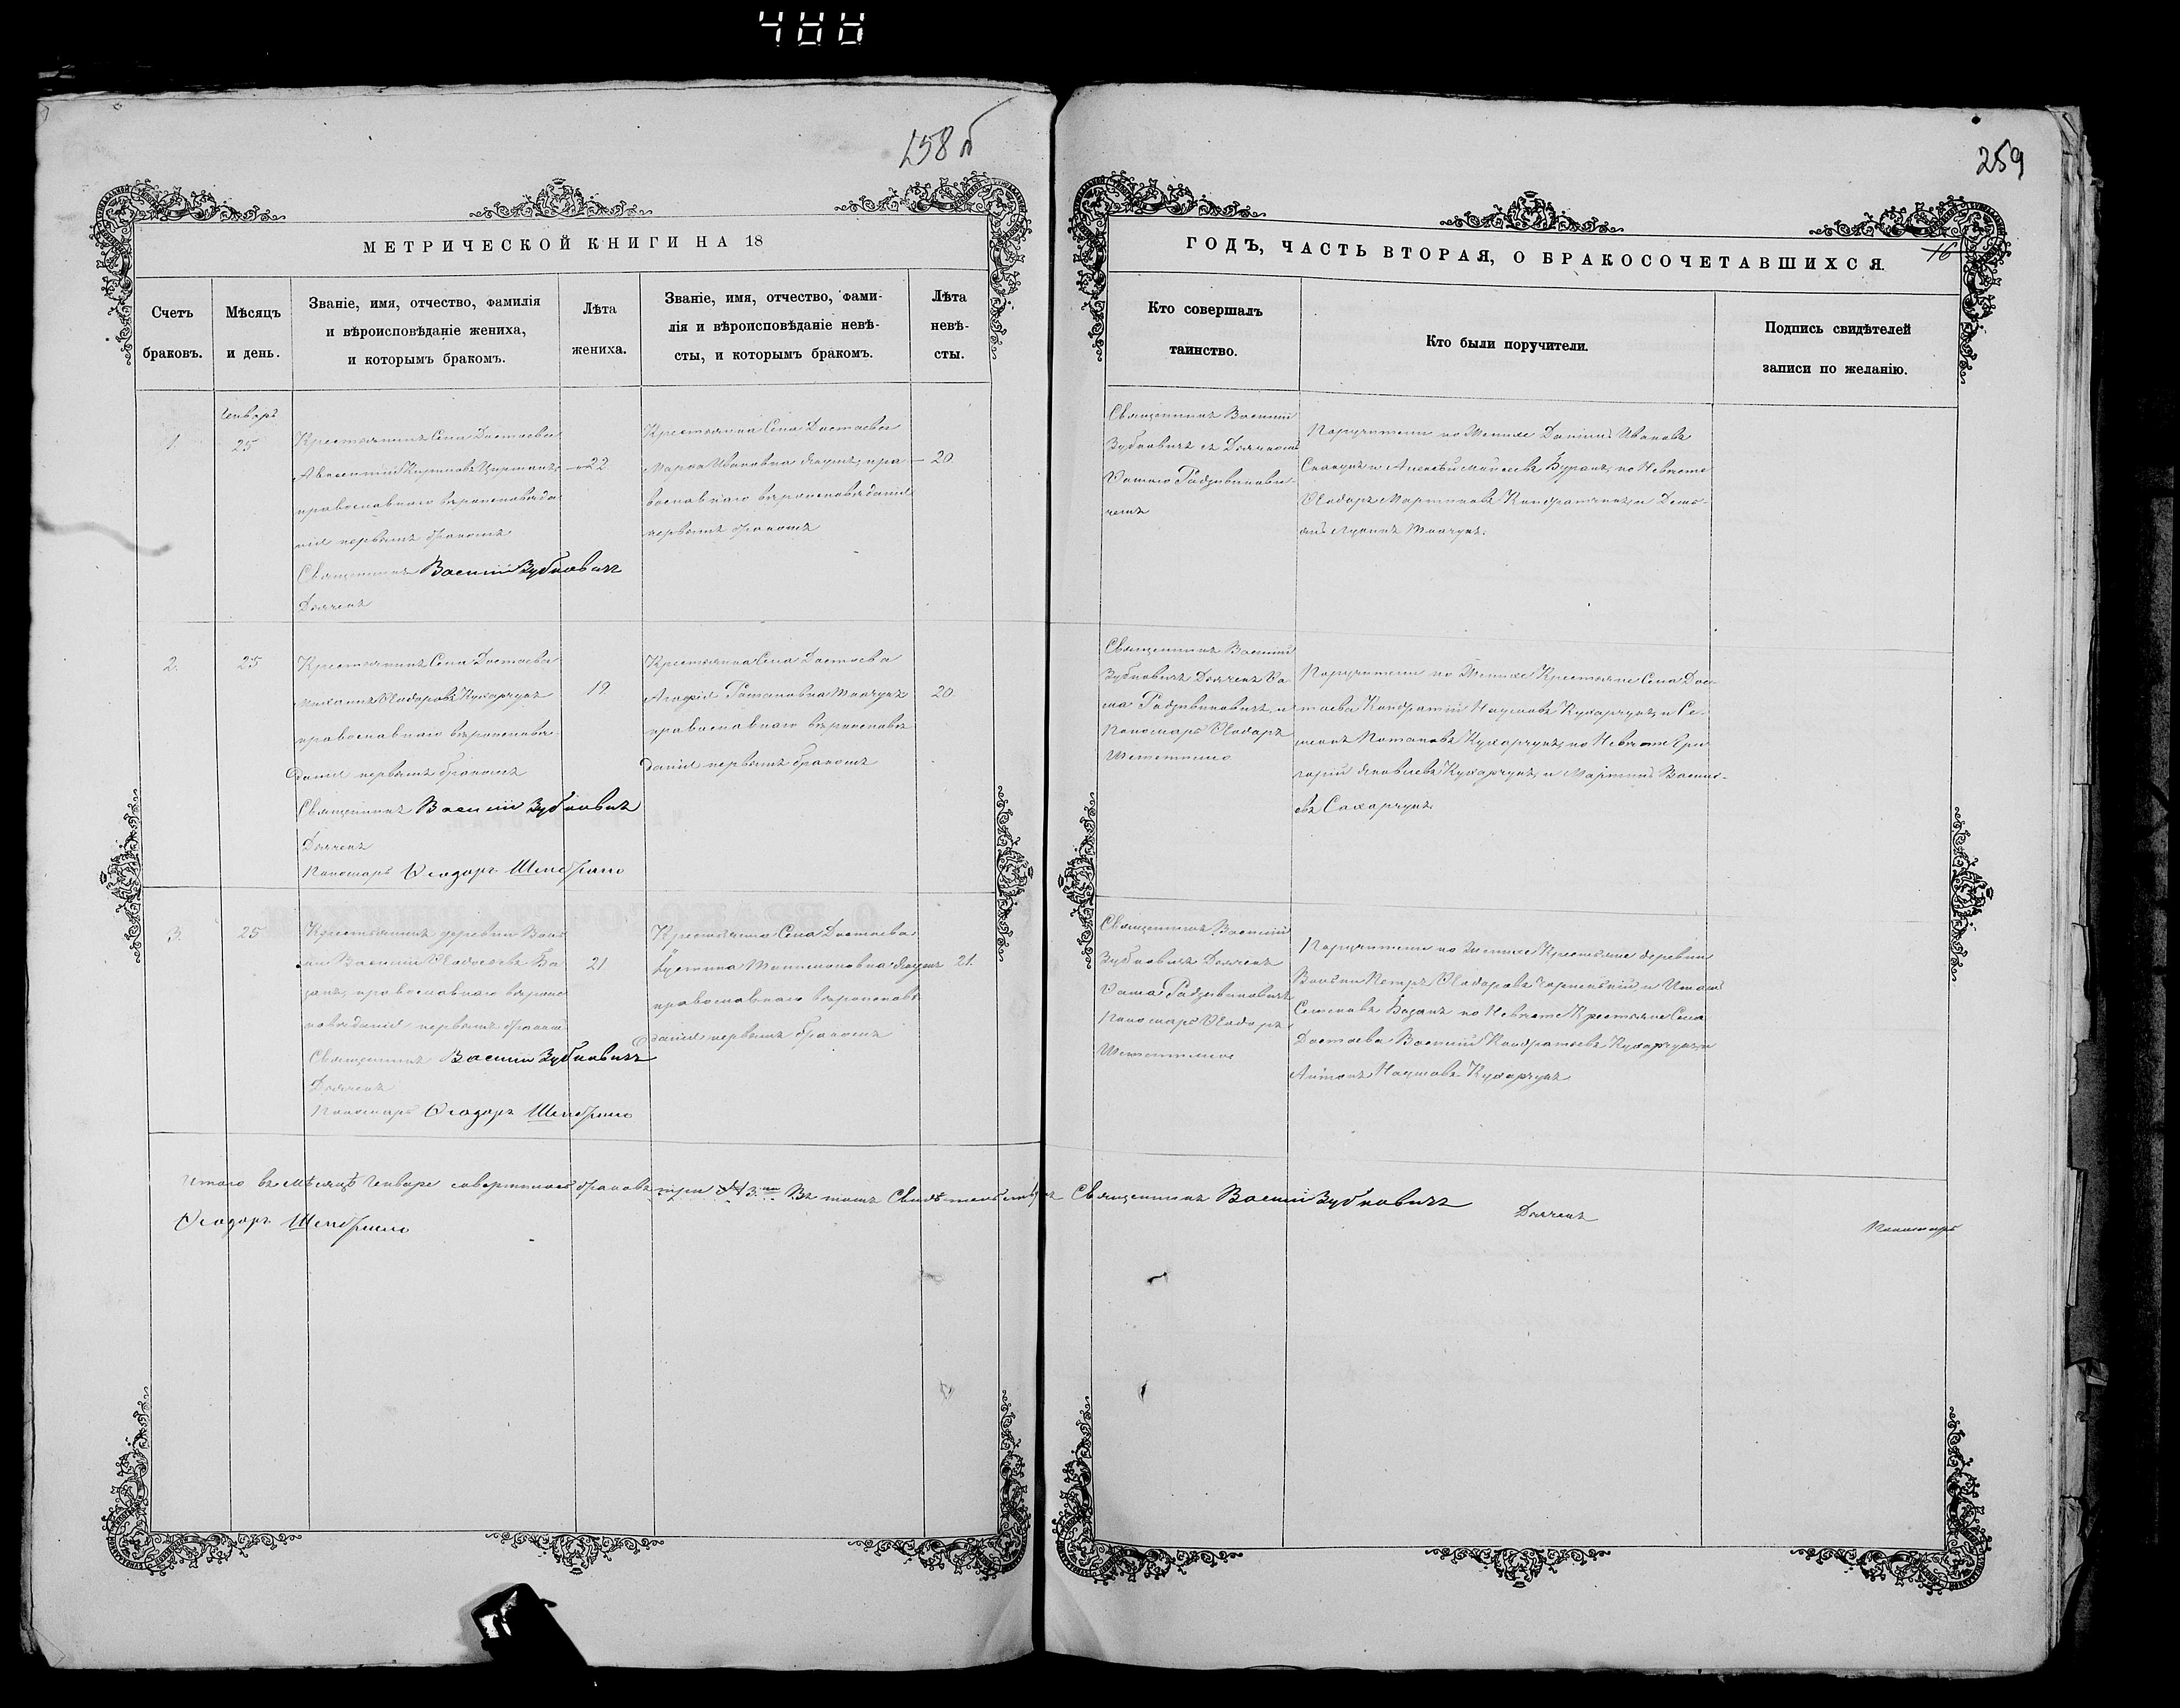 488
258 б
259
МЕТРИЧЕСКОЙ КНИГИ НА 18
ГОДЪ, ЧАСТЬ ВТОРАЯ, О БРАКОСОЧЕТАВШИХСЯ.
16
Счетъ
браковъ.
Мѣсяцъ
и день.
Званіе, имя, отчество, фамилія
и вѣроисповѣданіе жениха,
и которымъ бракомъ.
Лѣта
жениха.
Званіе, имя, отчество, фами-
лія и вѣроисповѣданіе невѣ-
сты, и которымъ бракомъ.
Лѣта
невѣ-
сты.
Кто совершалъ
таинство.
Кто были поручители.
Подпись свидѣтелей
записи по желанію.
1.
Генварь
25
Крестьянинъ Села Достоева
Авксентий Кириковъ
православнаго вѣроисповѣда
нія первымъ бракомъ
Священникъ Василій Зубковичъ
Дьячекъ
22
Крестьянка Села Достоева
Марѳа Иванова пра-
вославнаго вѣроисповѣданія
первымъ бракомъ
20.
Священникъ Василій
Зубковичъ съ Дьячкомъ
Ѳомою Радзивинови-
чемъ
Поручители по Женихѣ Даніилъ Ивановъ
и Алексѣй по Невѣстѣ
Ѳеодоръ Мартиновъ и Деме-
Ткачукъ.
2.
25
Крестьянинъ Села Достоева
Михаилъ Ѳеодоровъ Кухарчукъ
православнаго вѣроисповѣ-
данія первымъ бракомъ
Священникъ Василій Зубковичъ
Дьячекъ
Пономарь Ѳеодоръ
19
Крестьянка Села Достоева
Агафія Ткачукъ
православнаго вѣроисповѣ
данія первымъ бракомъ
20.
Священникъ Василій
Зубковичъ Дьячекъ Ѳо-
ма Радзивиновичъ и
Пономарь Ѳеодоръ
Поручители по Женихѣ Крестьяне Села Дос-
тоева Кондратій Наумовъ Кухарчукъ и Се-
менъ Потаповъ Кухарчукъ, по Невѣстѣ Гри
горій Яковлевъ Кухарчукъ и Мартинъ Василь-
евъ Сахарчукъ
3.
25
Крестьянинъ деревни
Василій Ѳеодосіевъ Ба
занъ, православнаго вѣроис
повѣданія первымъ бракомъ
Священникъ Василій Зубковичъ
Дьячекъ
Пономарь Ѳеодоръ
21
Крестьянка Села Достоева
Іустина
православнаго вѣроисповѣ
данія первымъ бракомъ
21.
Священникъ Василій
Зубковичъ Дьячекъ
Ѳома Радзивиновичъ
Пономарь Ѳеодоръ
Поручители по Женихѣ Крестьяне деревни
Петръ Ѳеодоровъ и
Семеновъ Базанъ по Невѣстѣ Крестьяне Села
Достоева Василій Кондратьевъ Кухарчукъ и
Антонъ Наумовъ Кухарчукъ
Итого въ мѣсяцѣ Генварѣ совершилось браковъ три № 3. Въ томъ Свидѣтельствуемъ Священникъ Василій Зубковичъ Дьячекъ Пономарь
Ѳеодоръ